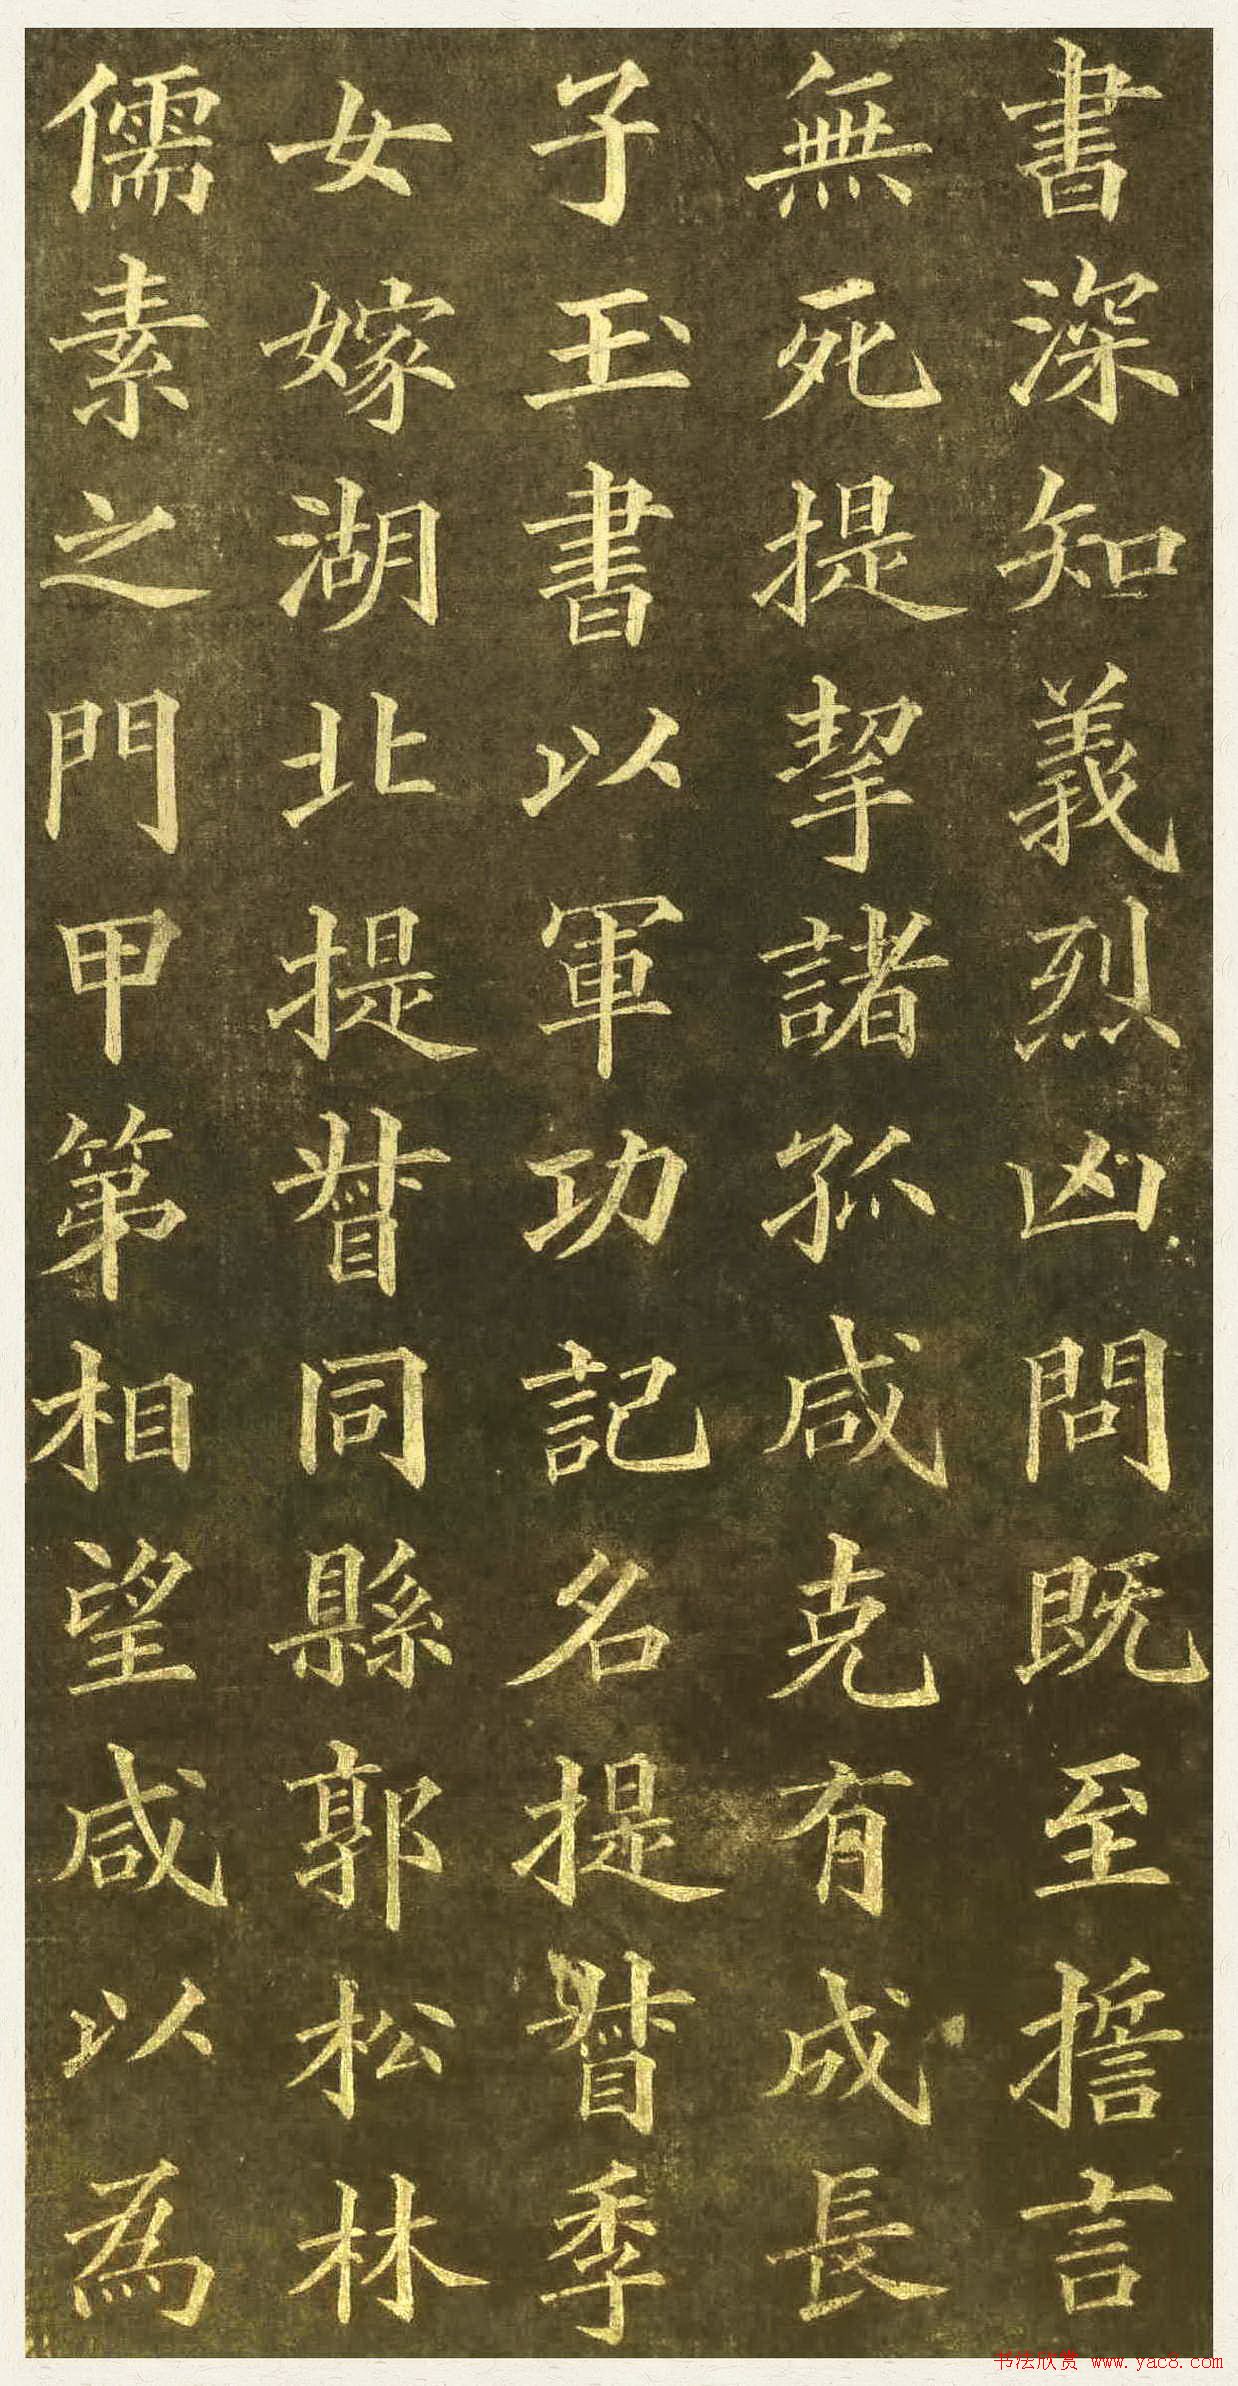 書深知義烈凶問既至搢言
無死提挈諸孤咸克有成長
子玉書以軍功記名提督季
女嫁湖北提督同縣郭松林
儒素之門甲第相望咸以為
书法欣赏 www.yac8.com